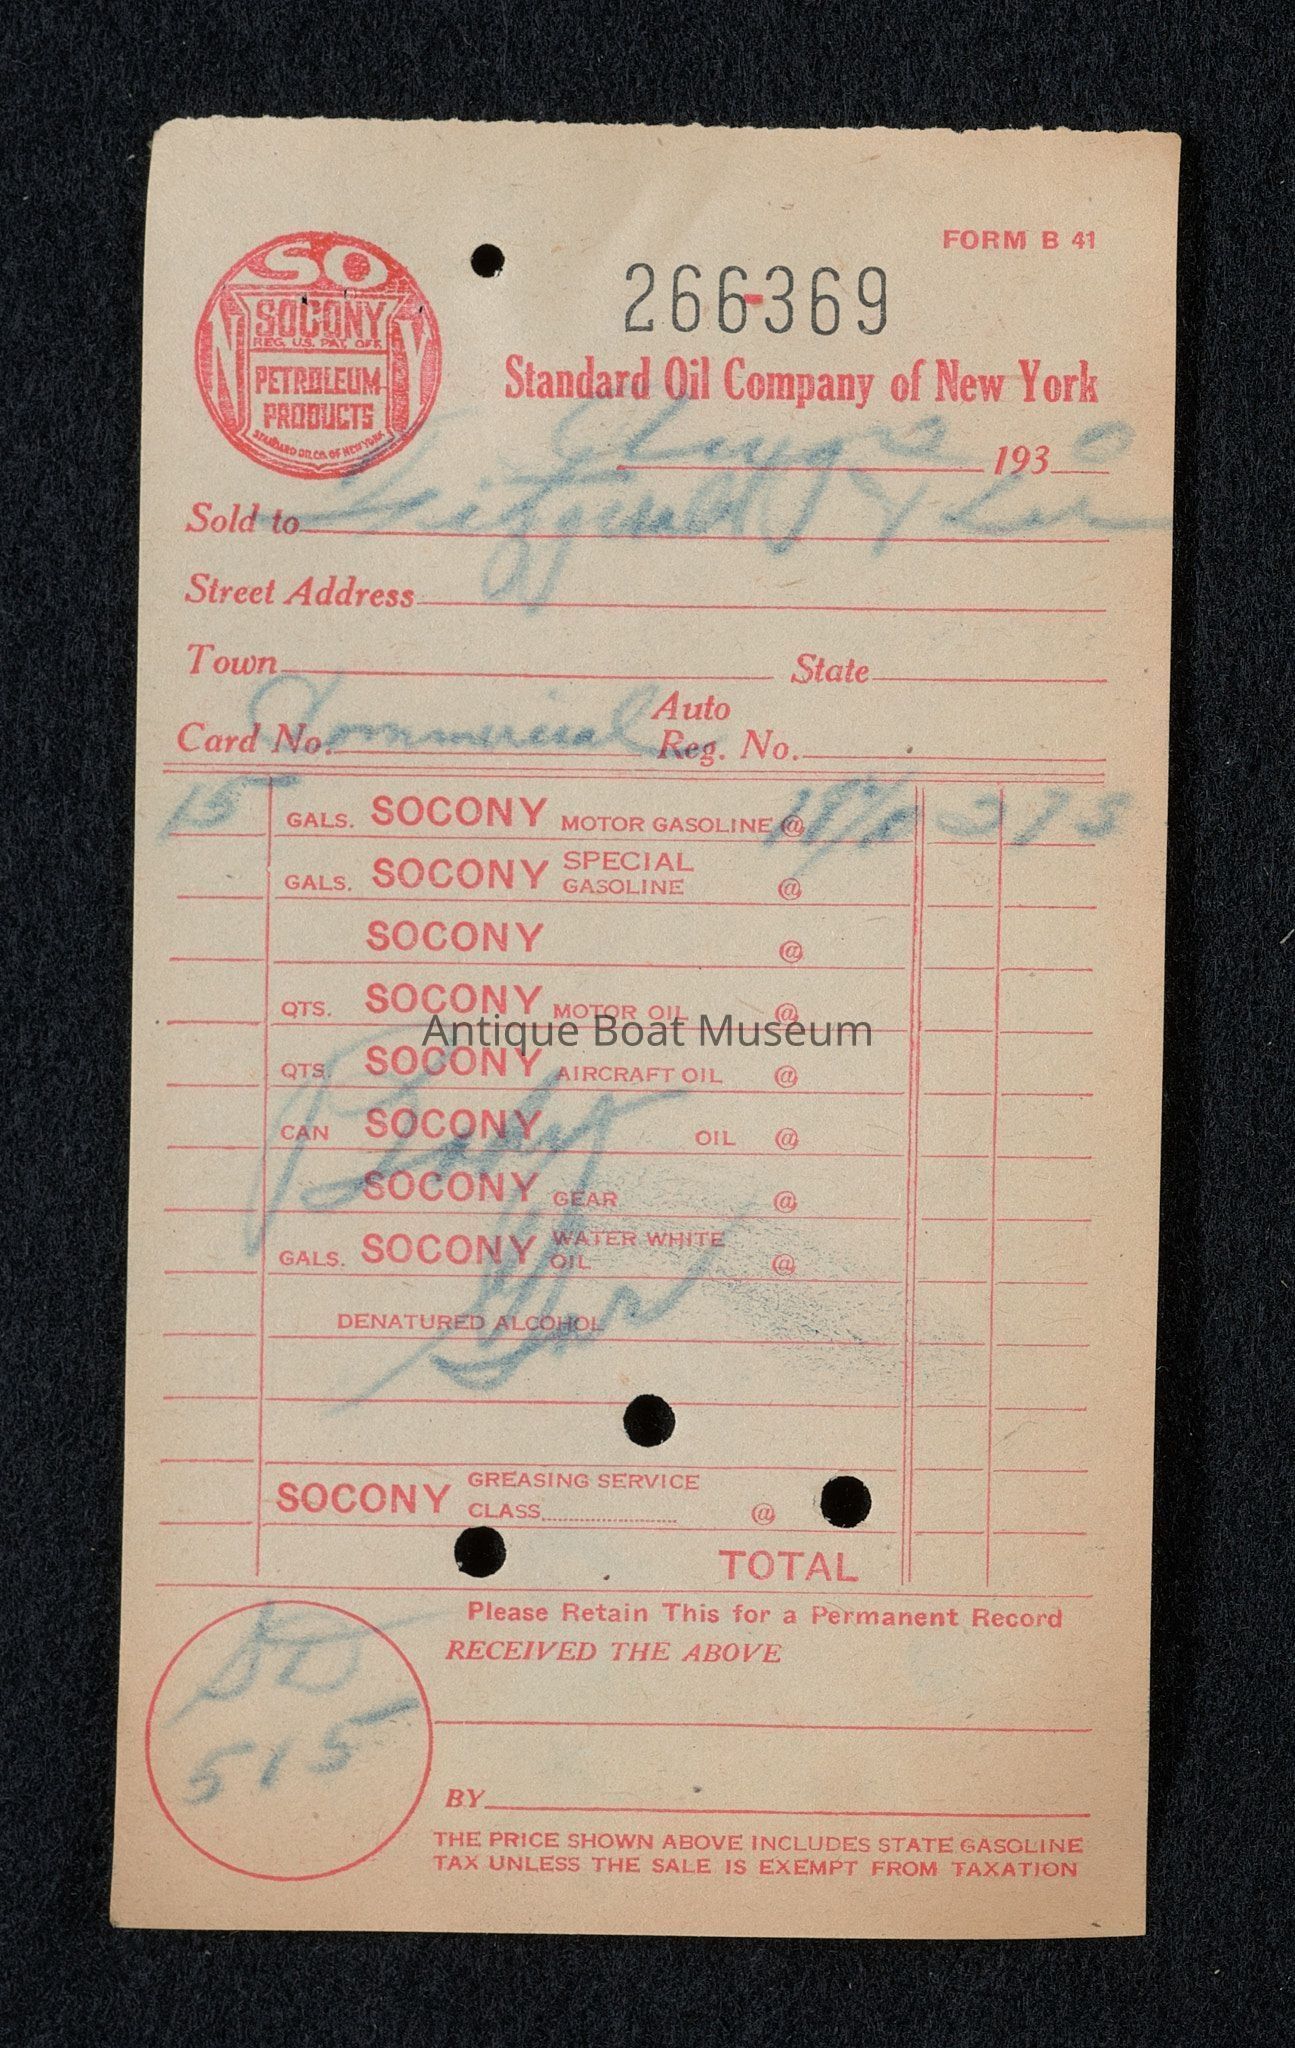 FORM B 41
SO
NY
SOCONY
REG. U.S. PAT. OFF.
PETROLEUM
PRODUCTS
STANDARD OIL CO. OF NEW YORK
266-369
Standard Oil Company of New York
Aug 2 1930
Sold to Fitzgerald & Lee
Street Address
Town State
Card No. Commercial Auto Reg. No.
15 GALS. SOCONY MOTOR GASOLINE @ 2 75
GALS. SOCONY SPECIAL GASOLINE @
SOCONY @
QTS. SOCONY MOTOR OIL @
Antique Boat Museum
QTS. SOCONY AIRCRAFT OIL @
CAN SOCONY OIL @
SOCONY GEAR @
GALS. SOCONY WATER WHITE OIL @
DENATURED ALCOHOL
SOCONY GREASING SERVICE
CLASS @
TOTAL
Please Retain This for a Permanent Record
RECEIVED THE ABOVE
515
BY
THE PRICE SHOWN ABOVE INCLUDES STATE GASOLINE
TAX UNLESS THE SALE IS EXEMPT FROM TAXATION